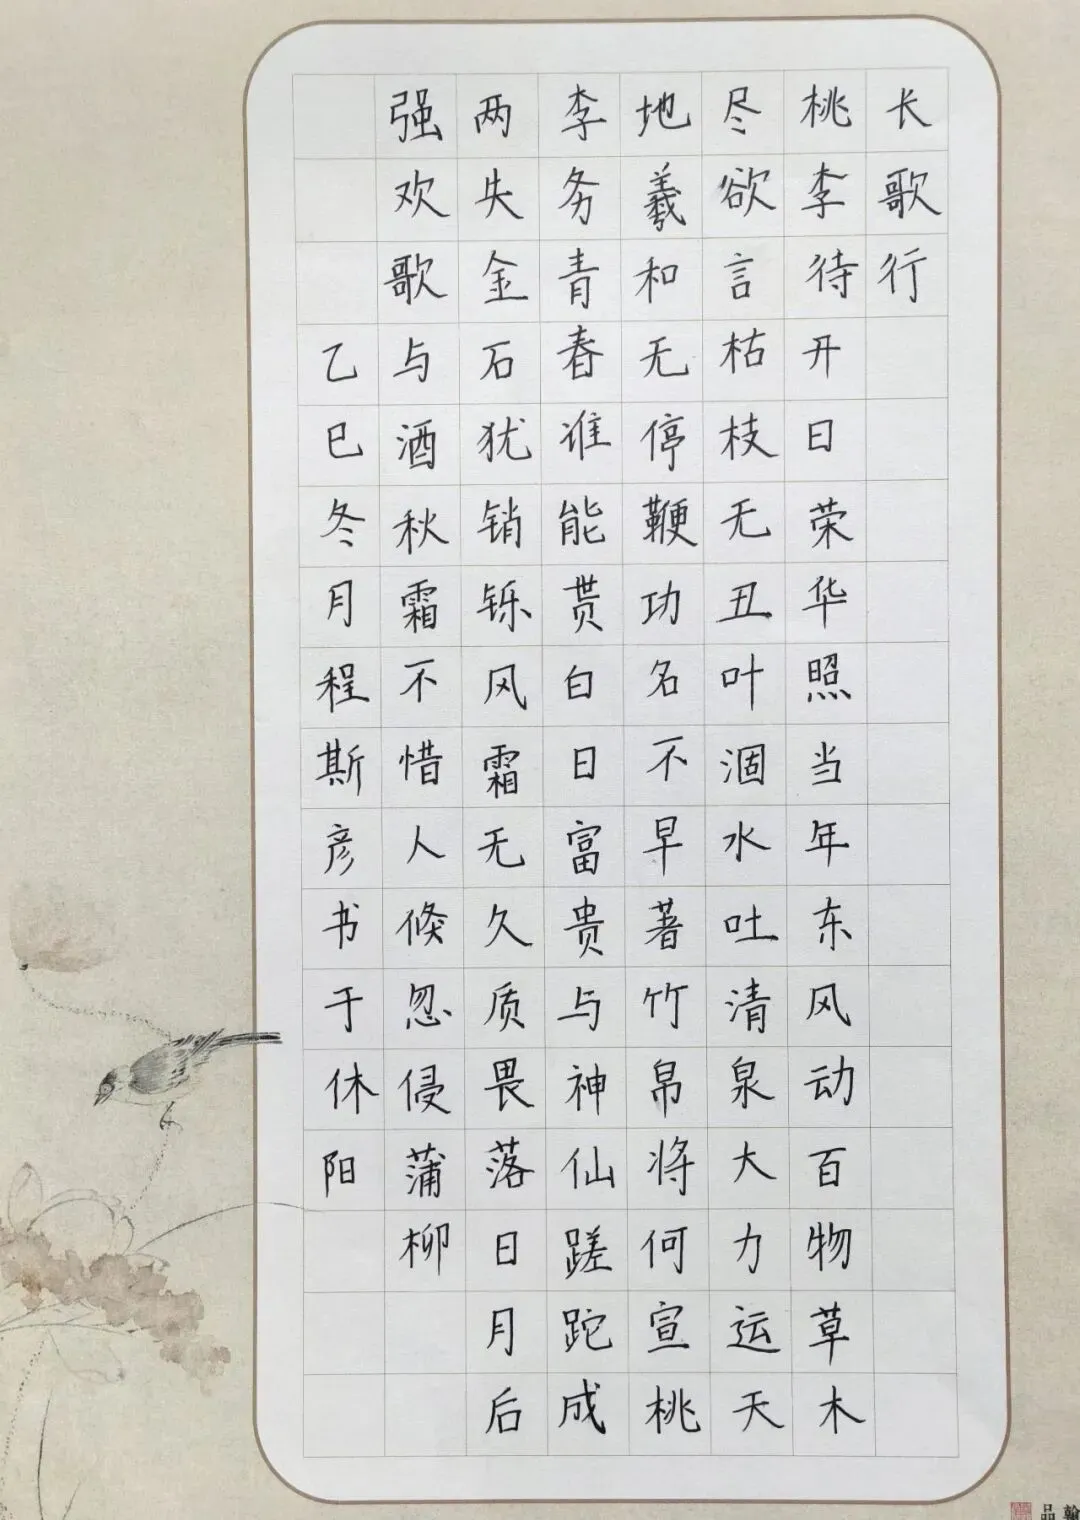 长歌行
桃李待开日荣华照当年东风动百物草木
尽欲言枯枝无丑叶涸水吐清泉大力运天
地羲和无停鞭功名不早著竹帛将何宣桃
李务青春谁能贳白日富贵与神仙蹉跎成
两失金石犹销铄风霜无久质畏落日月后
强欢歌与酒秋霜不惜人倏忽侵蒲柳
乙巳冬月程斯彦书于休阳
翰
品